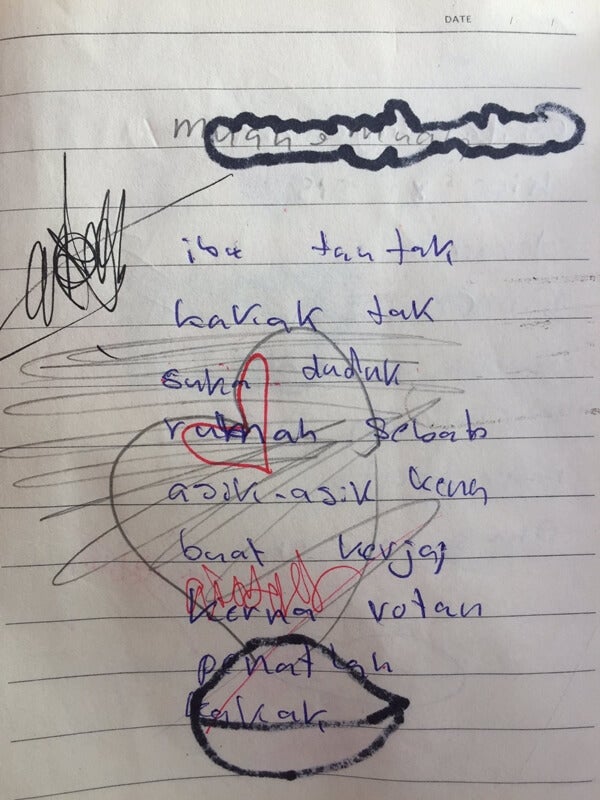 DATE / /
ibu tau tak
kakak tak
suka duduk
rumah sebab
asik-asik kena
buat kerja,
kena rotan
penat lah
kakak,